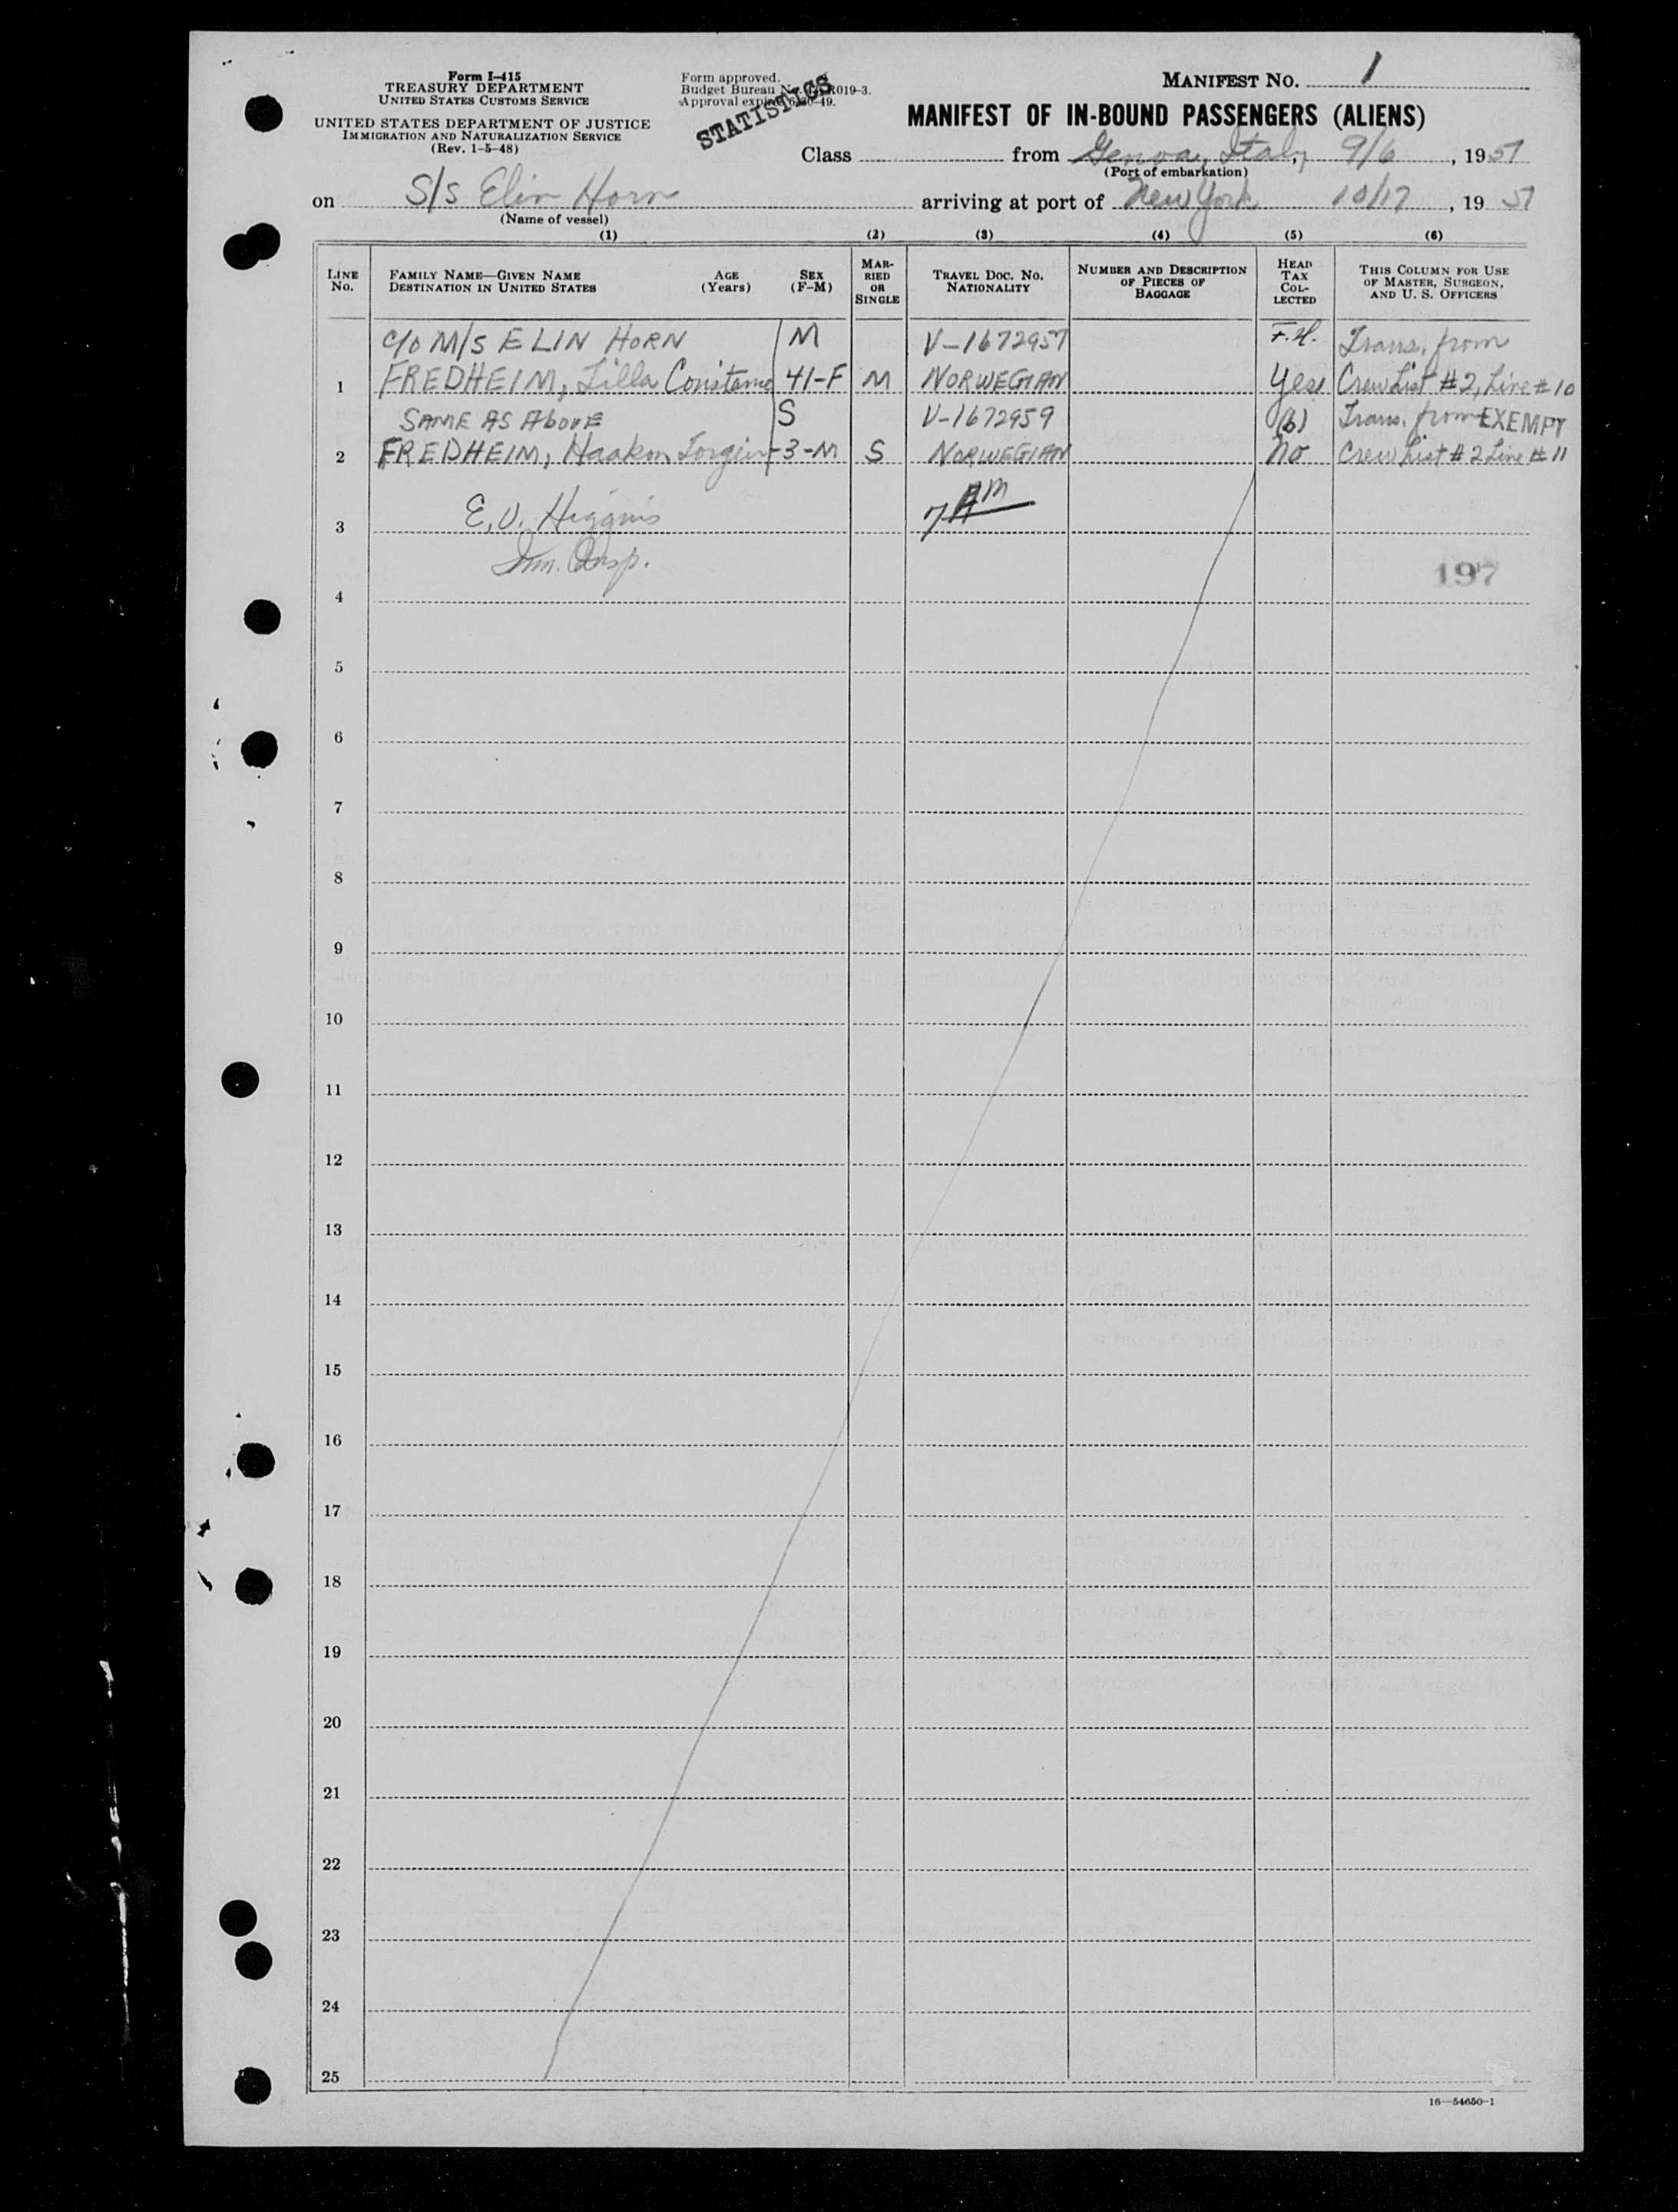 Form I-415
TREASURY DEPARTMENT
UNITED STATES CUSTOMS SERVICE
UNITED STATES DEPARTMENT OF JUSTICE
IMMIGRATION AND NATURALIZATION SERVICE
(Rev. 1-5-48)
Form approved.
Budget Bureau No. R019-3.
Approval expires 6-30-49.
STATISTICS
MANIFEST NO. 1
MANIFEST OF IN-BOUND PASSENGERS (ALIENS)
Class from Genoa, Italy, 9/6, 1951
(Port of embarkation)
on S/S Elin Horn arriving at port of New York 10/17, 1951
(Name of vessel)
(1) (2) (3) (4) (5) (6)
LINE No. FAMILY NAME—GIVEN NAME DESTINATION IN UNITED STATES AGE (Years) SEX (F-M) MARRIED OR SINGLE TRAVEL DOC. NO. NATIONALITY NUMBER AND DESCRIPTION OF PIECES OF BAGGAGE HEAD TAX COLLECTED THIS COLUMN FOR USE OF MASTER, SURGEON, AND U. S. OFFICERS
C/O M/S ELIN HORN M V-1672957 F.H. Trans. from
1 FREDHEIM, Lilla Constance 41-F M NORWEGIAN Yes Crew List #2, Line #10
SAME AS ABOVE S V-1672959 (b) Trans. from EXEMPT
2 FREDHEIM, Haakon 3-M S NORWEGIAN No Crew List #2 Line #11
3 E.V. Higgins 7 AM
Imm. Insp.
197
4
5
6
7
8
9
10
11
12
13
14
15
16
17
18
19
20
21
22
23
24
25
16—54650-1